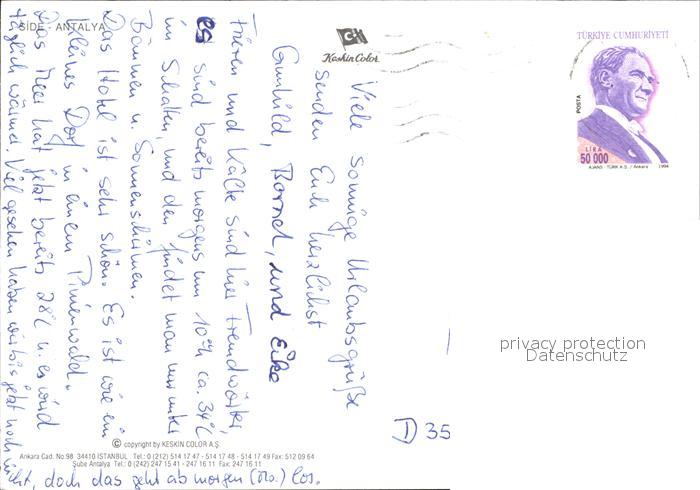 SIDE - ANTALYA
Keskin Color
TÜRKİYE CUMHURİYETİ
POSTA
LİRA
50 000
AJANS - TÜRK A.Ş. / Ankara 1994
Viele sonnige Urlaubsgrüße
senden Euch herzlichst
Gunhild, und Eike
Frieren und Kälte sind hier Fremdwörter,
es sind bereits morgens um 10 Uhr ca. 34°C
im Schatten, und den findet man nur unter
Bäumen u. Sonnenschirmen.
Das Hotel ist sehr schön. Es ist wie ein
kleines Dorf in einem Pinienwald.
Das Meer hat jetzt bereits 28°C u. es wird
täglich wärmer. Viel gesehen haben wir bis jetzt noch
nicht, doch das geht ab morgen (Mo.) los.
D 35
privacy protection
Datenschutz
© copyright by KESKIN COLOR A.Ş.
Ankara Cad. No.98 34410 İSTANBUL Tel.: 0 (212) 514 17 47 - 514 17 48 - 514 17 49 Fax: 512 09 64
Şube Antalya Tel.: 0 (242) 247 15 41 - 247 16 11 Fax: 247 16 11